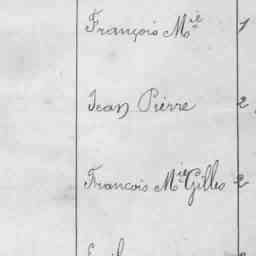 François Mie 1
Jean Pierre 2
Francois Mie Gilles 2